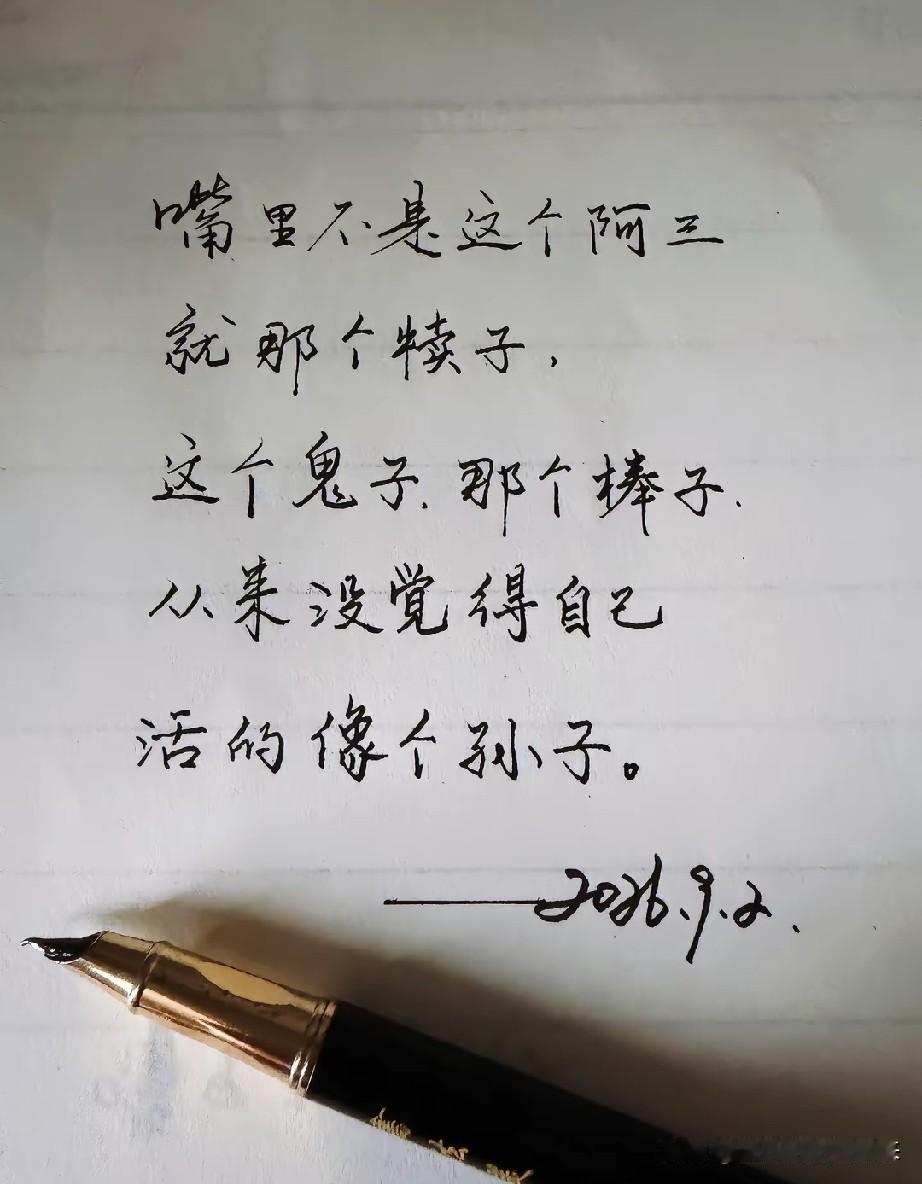 嘴里不是这个阿三
就那个犊子，
这个鬼子、那个棒子、
从来没觉得自己
活的像个孙子。
——2026.9.2.